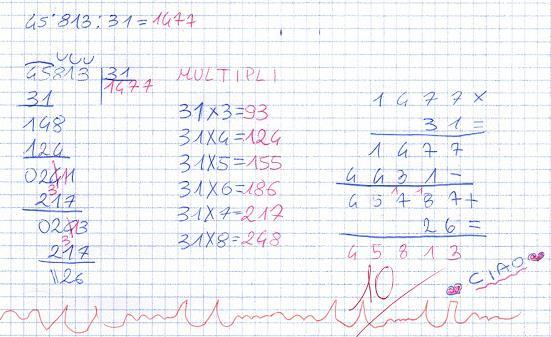 45˙813:31=1477
45813 31
1477
31
148
124
0241
217
0243
217
26
MULTIPLI
31×3=93
31×4=124
31×5=155
31×6=186
31×7=217
31×8=248
1477×
31=
1477
4431-
45787+
26=
45813
10
CIAO